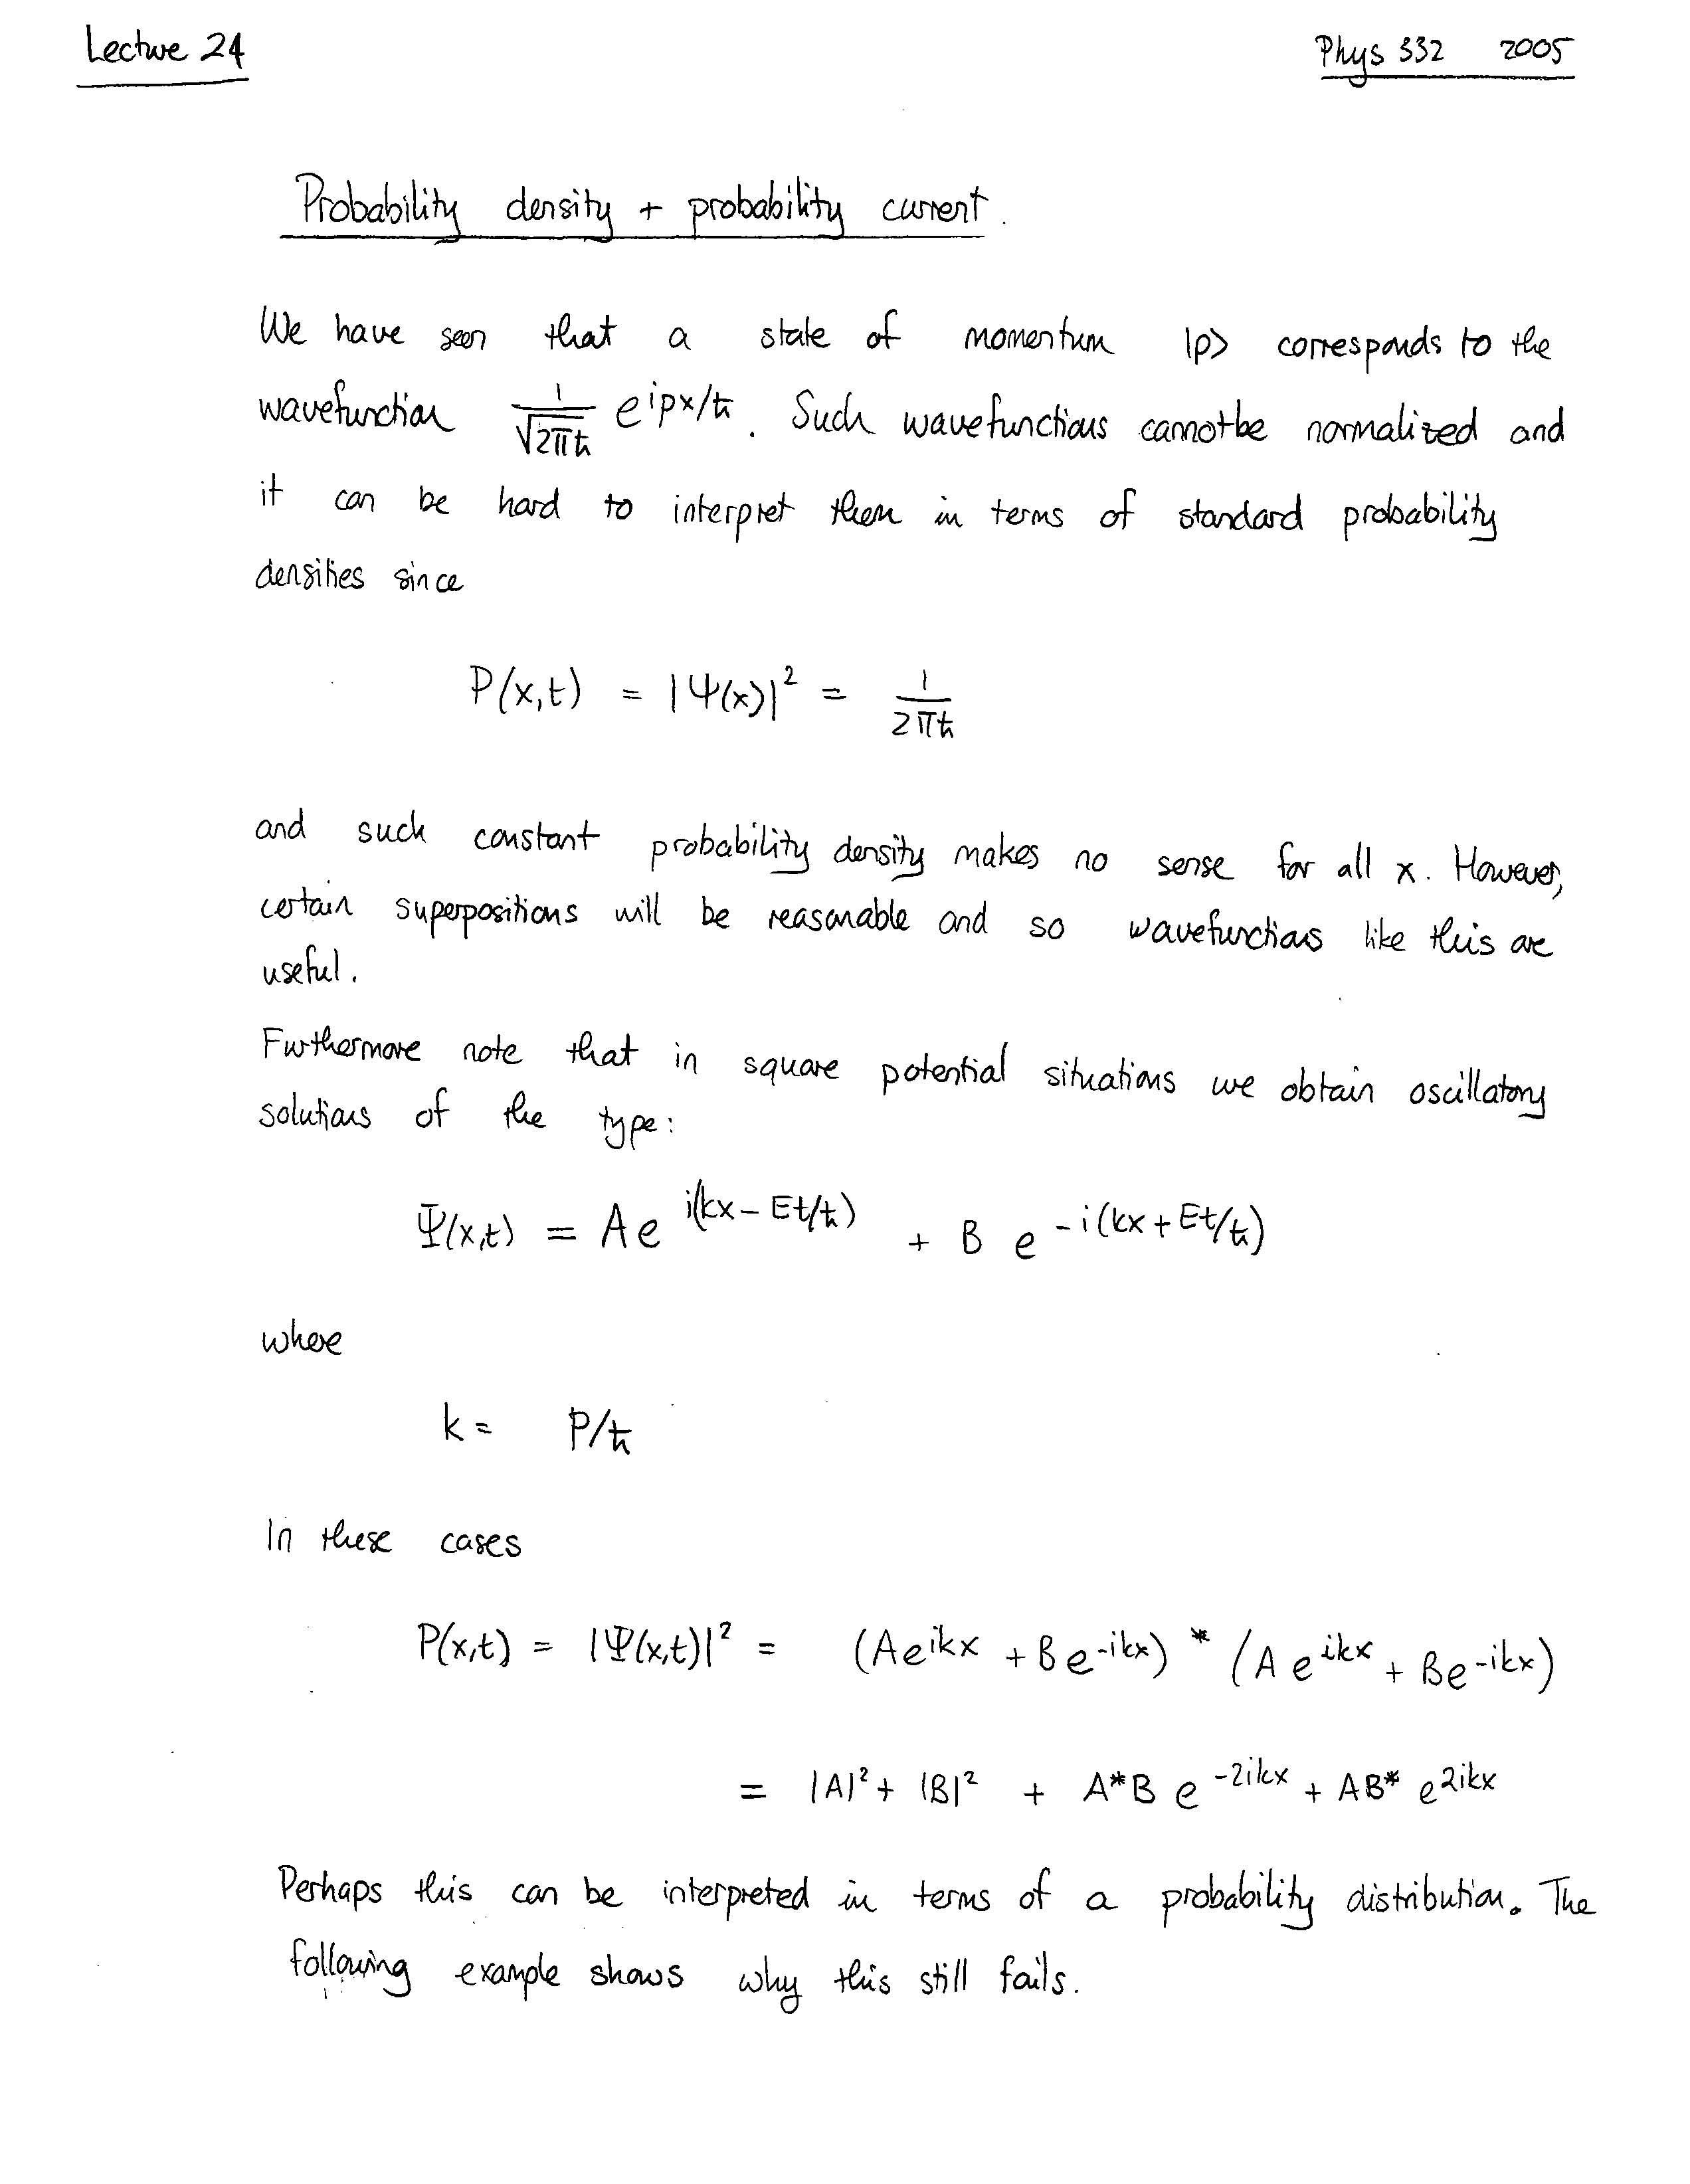 Lecture 24 Phys 332 2005
Probability density + probability current.
We have seen that a state of momentum |p> corresponds to the
wavefunction 1/√2πħ e^{ipx/ħ}. Such wavefunctions cannot be normalized and
it can be hard to interpret them in terms of standard probability
densities since
P(x,t) = |Ψ(x)|² = 1/2πħ
and such constant probability density makes no sense for all x. However,
certain superpositions will be reasonable and so wavefunctions like this are
useful.
Furthermore note that in square potential situations we obtain oscillatory
solutions of the type:
Ψ(x,t) = A e^{i(kx - Et/ħ)} + B e^{-i(kx + Et/ħ)}
where
k = P/ħ
In these cases
P(x,t) = |Ψ(x,t)|² = (A e^{ikx} + B e^{-ikx})* (A e^{ikx} + B e^{-ikx})
= |A|² + |B|² + A*B e^{-2ikx} + AB* e^{2ikx}
Perhaps this can be interpreted in terms of a probability distribution. The
following example shows why this still fails.